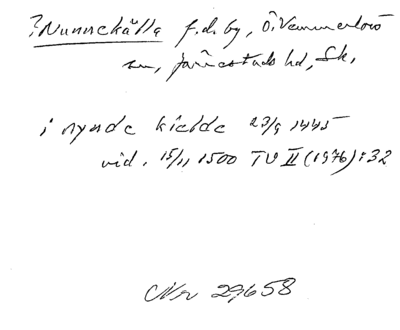 ?Nunnekälla f.d. by, Ö. Vemmerlövs
sn, Järrestads hd, Sk.
i nynde kielde 23/9 1445
vid. 15/11 1500 TU II (1976): 32
Nr 29658